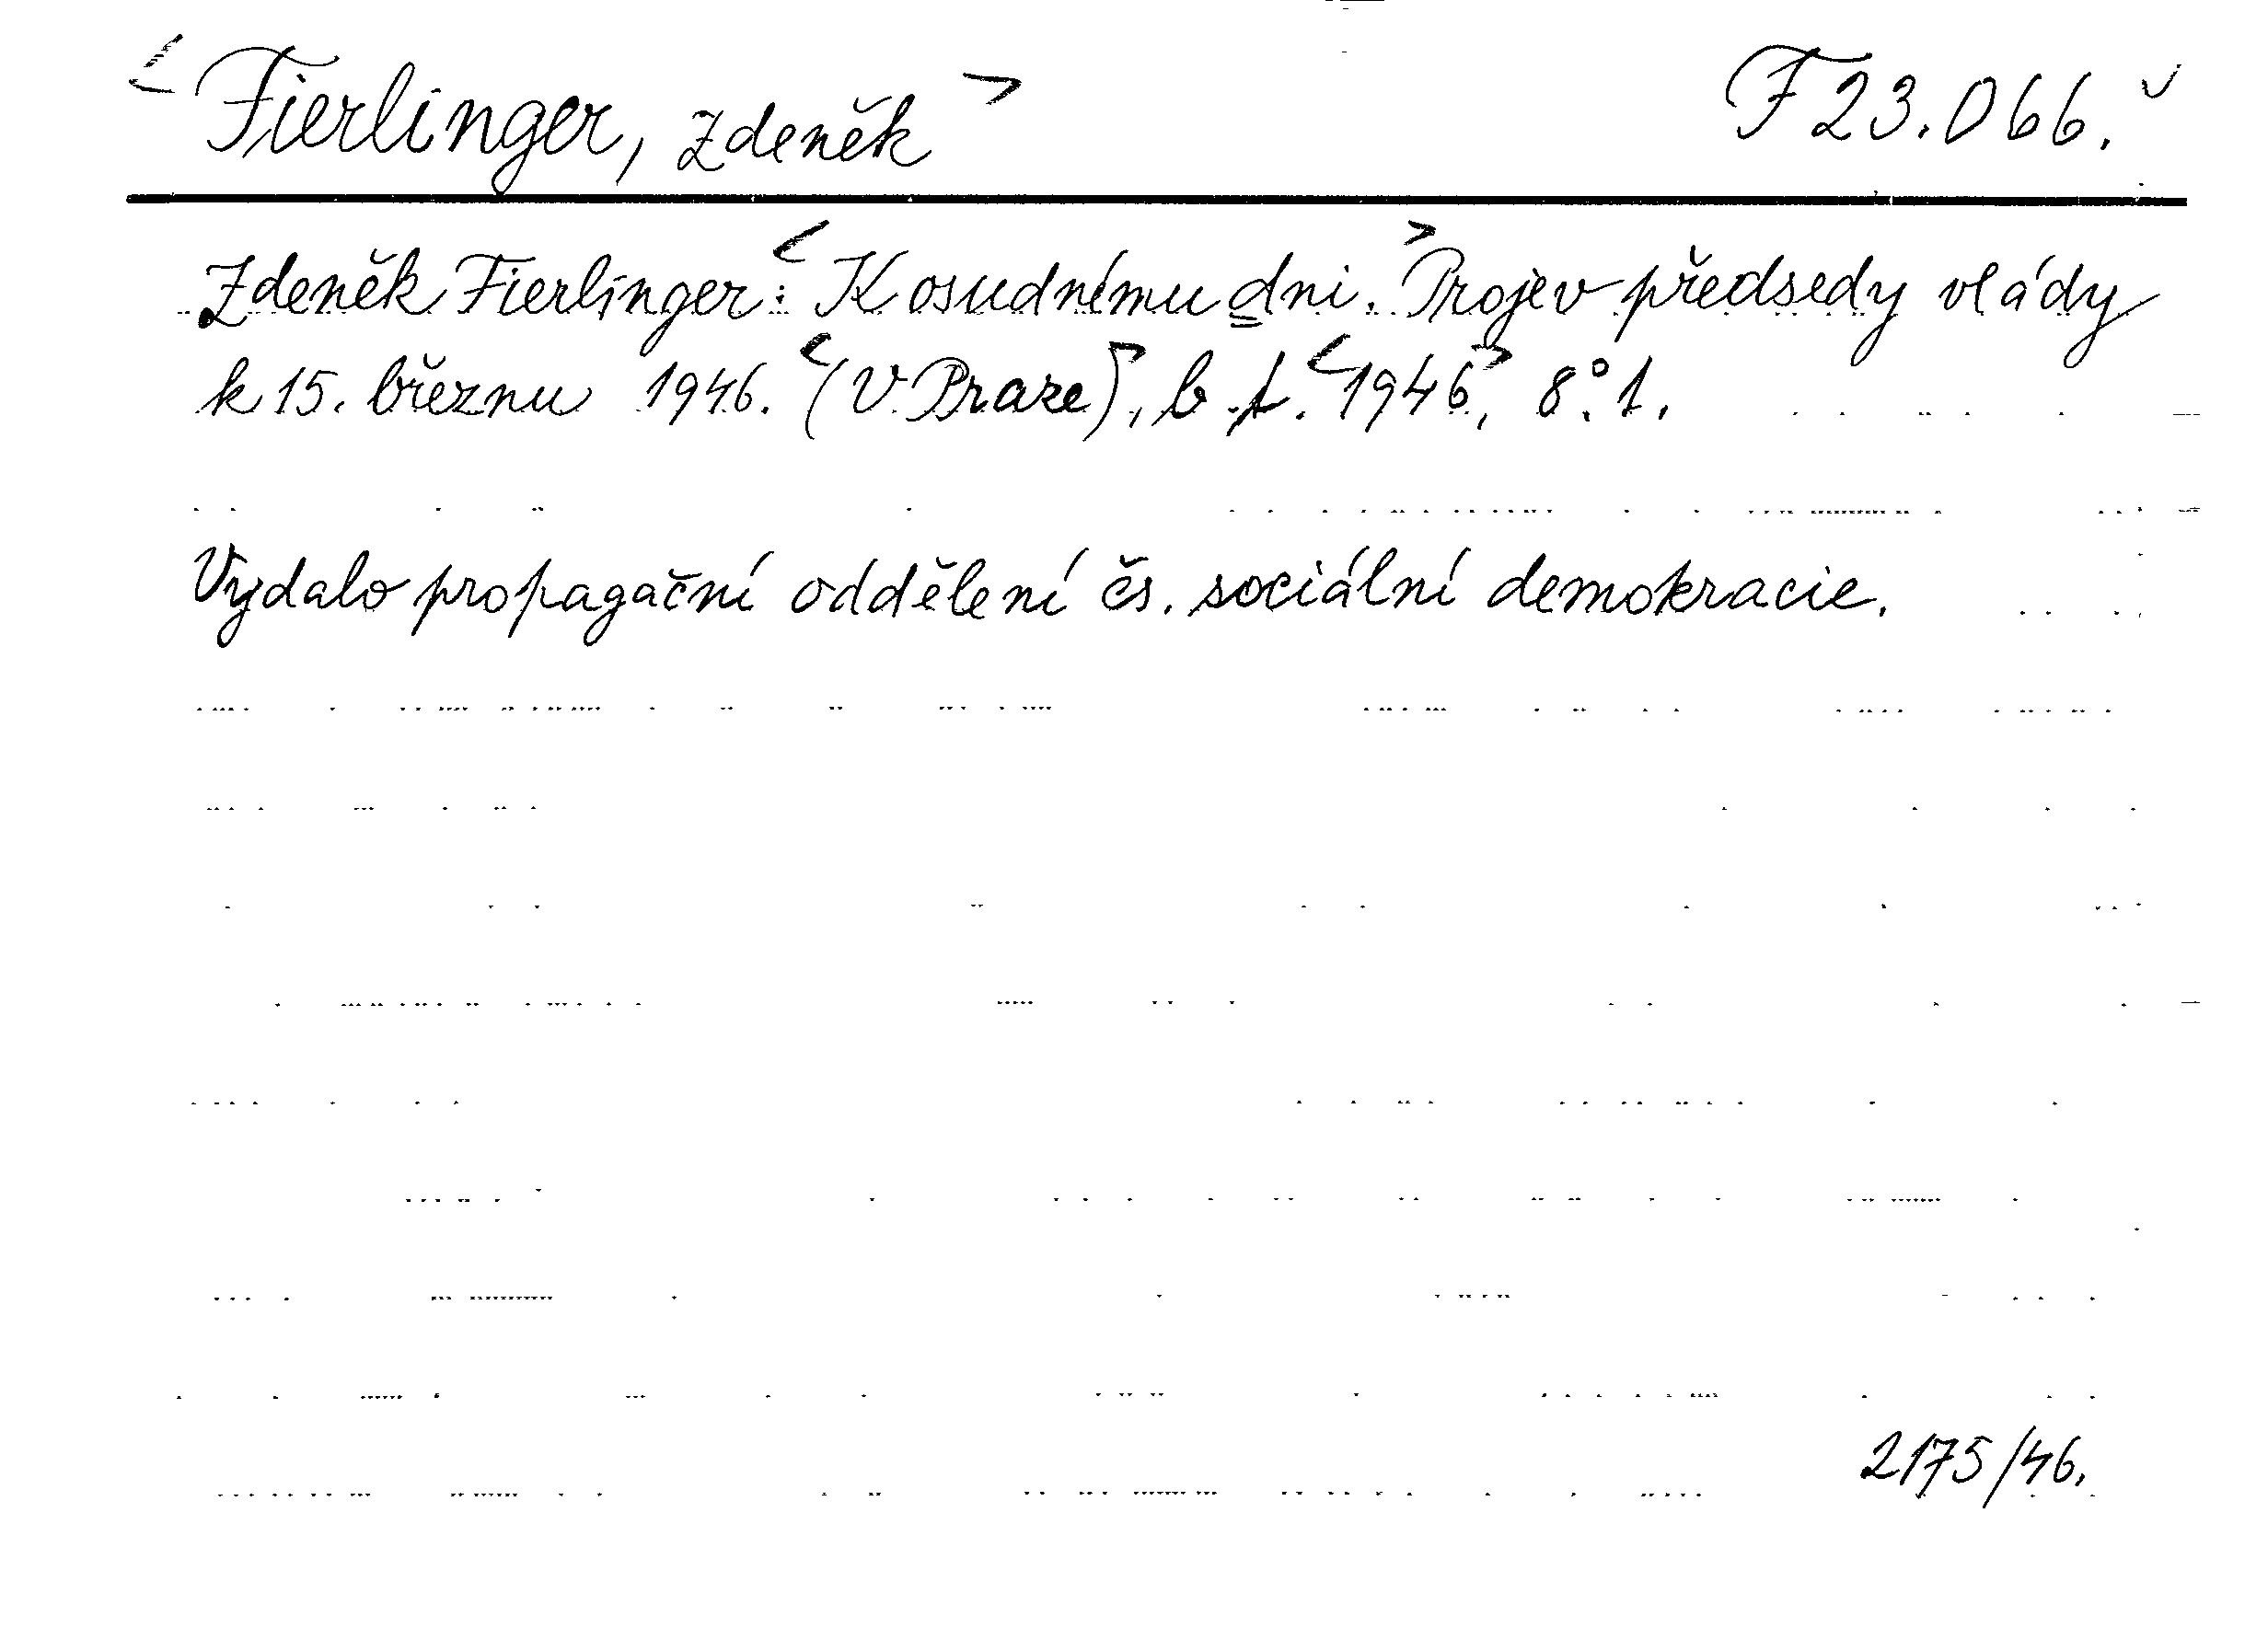 <Fierlinger, Zdeněk> F 23.066.
Zdeněk Fierlinger: <K osudnému dni.> Projev předsedy vlády
k 15. březnu 1946. <(V Praze)>, b. t. <1946>, 8°. 1.
Vydalo propagační oddělení čs. sociální demokracie.
2175/46.